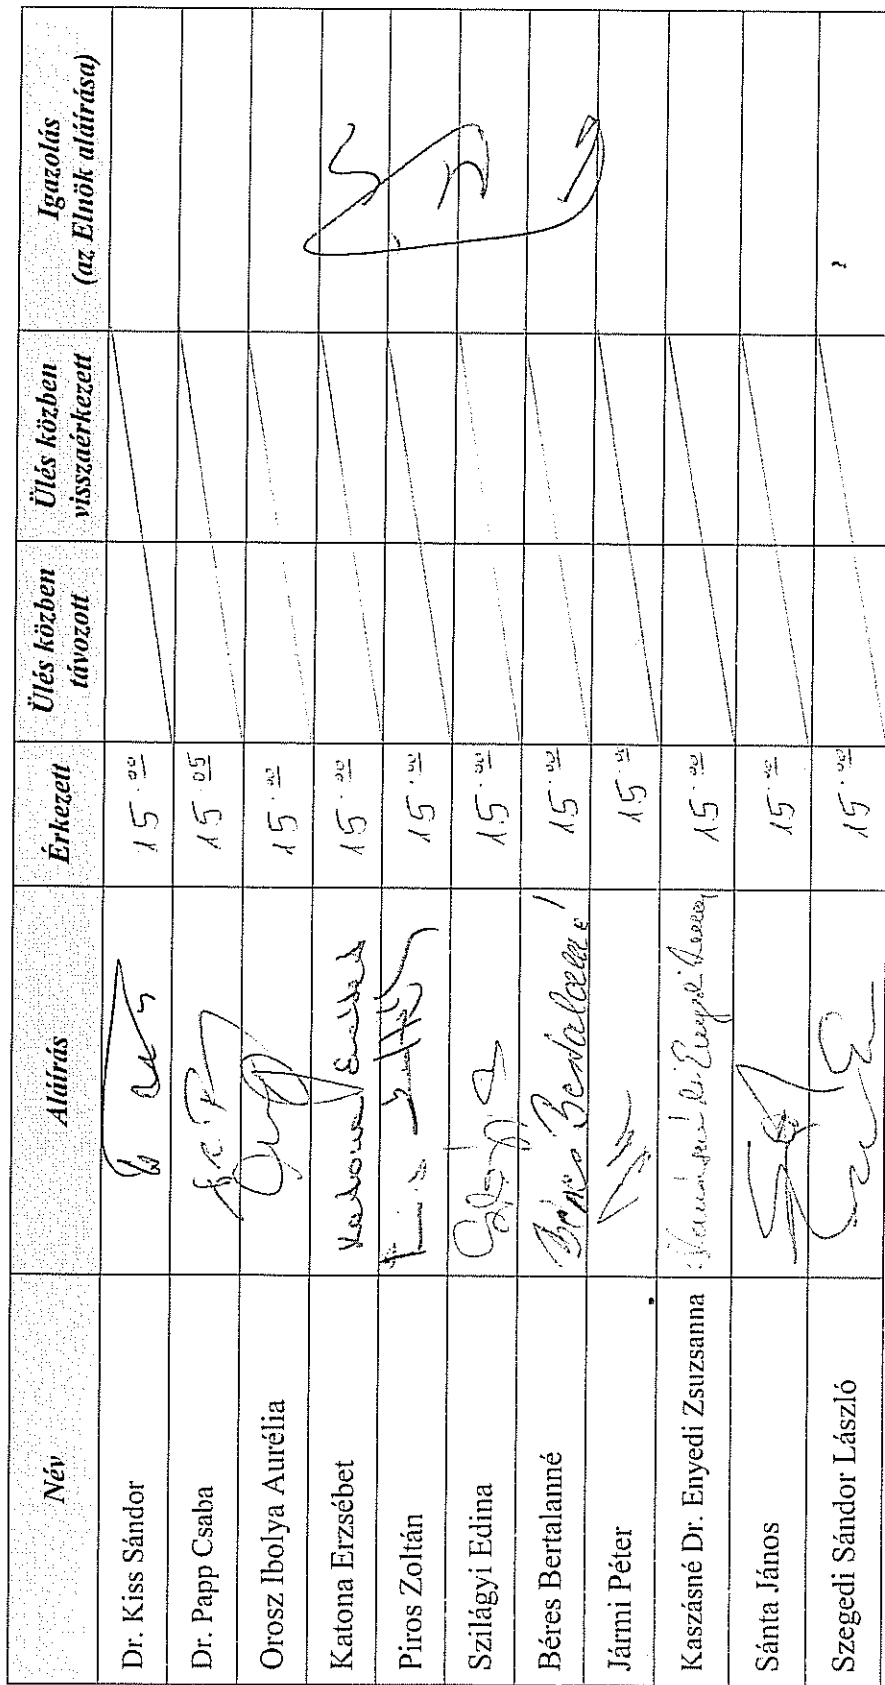 Név Aláírás Érkezett Ülés közben távozott Ülés közben visszaérkezett Igazolás (az Elnök aláírása)
Dr. Kiss Sándor 15.00
Dr. Papp Csaba 15 05
Orosz Ibolya Aurélia 15.00
Katona Erzsébet Katona Erzsébet 15.00
Piros Zoltán 15.00
Szilágyi Edina 15.00
Béres Bertalanné Béres Bertalanné 15.00
Jármi Péter 15.00
Kaszásné Dr. Enyedi Zsuzsanna 15.00
Sánta János 15.00
Szegedi Sándor László 15.00